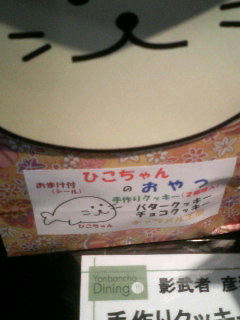 ひこちゃん
のおやつ
おまけ付
(シール)
手作りクッキー(2種類入)
バタークッキー
チョコクッキー
ひこちゃん
Yonbancho
Dining
影武者 彦
手作りクッキー